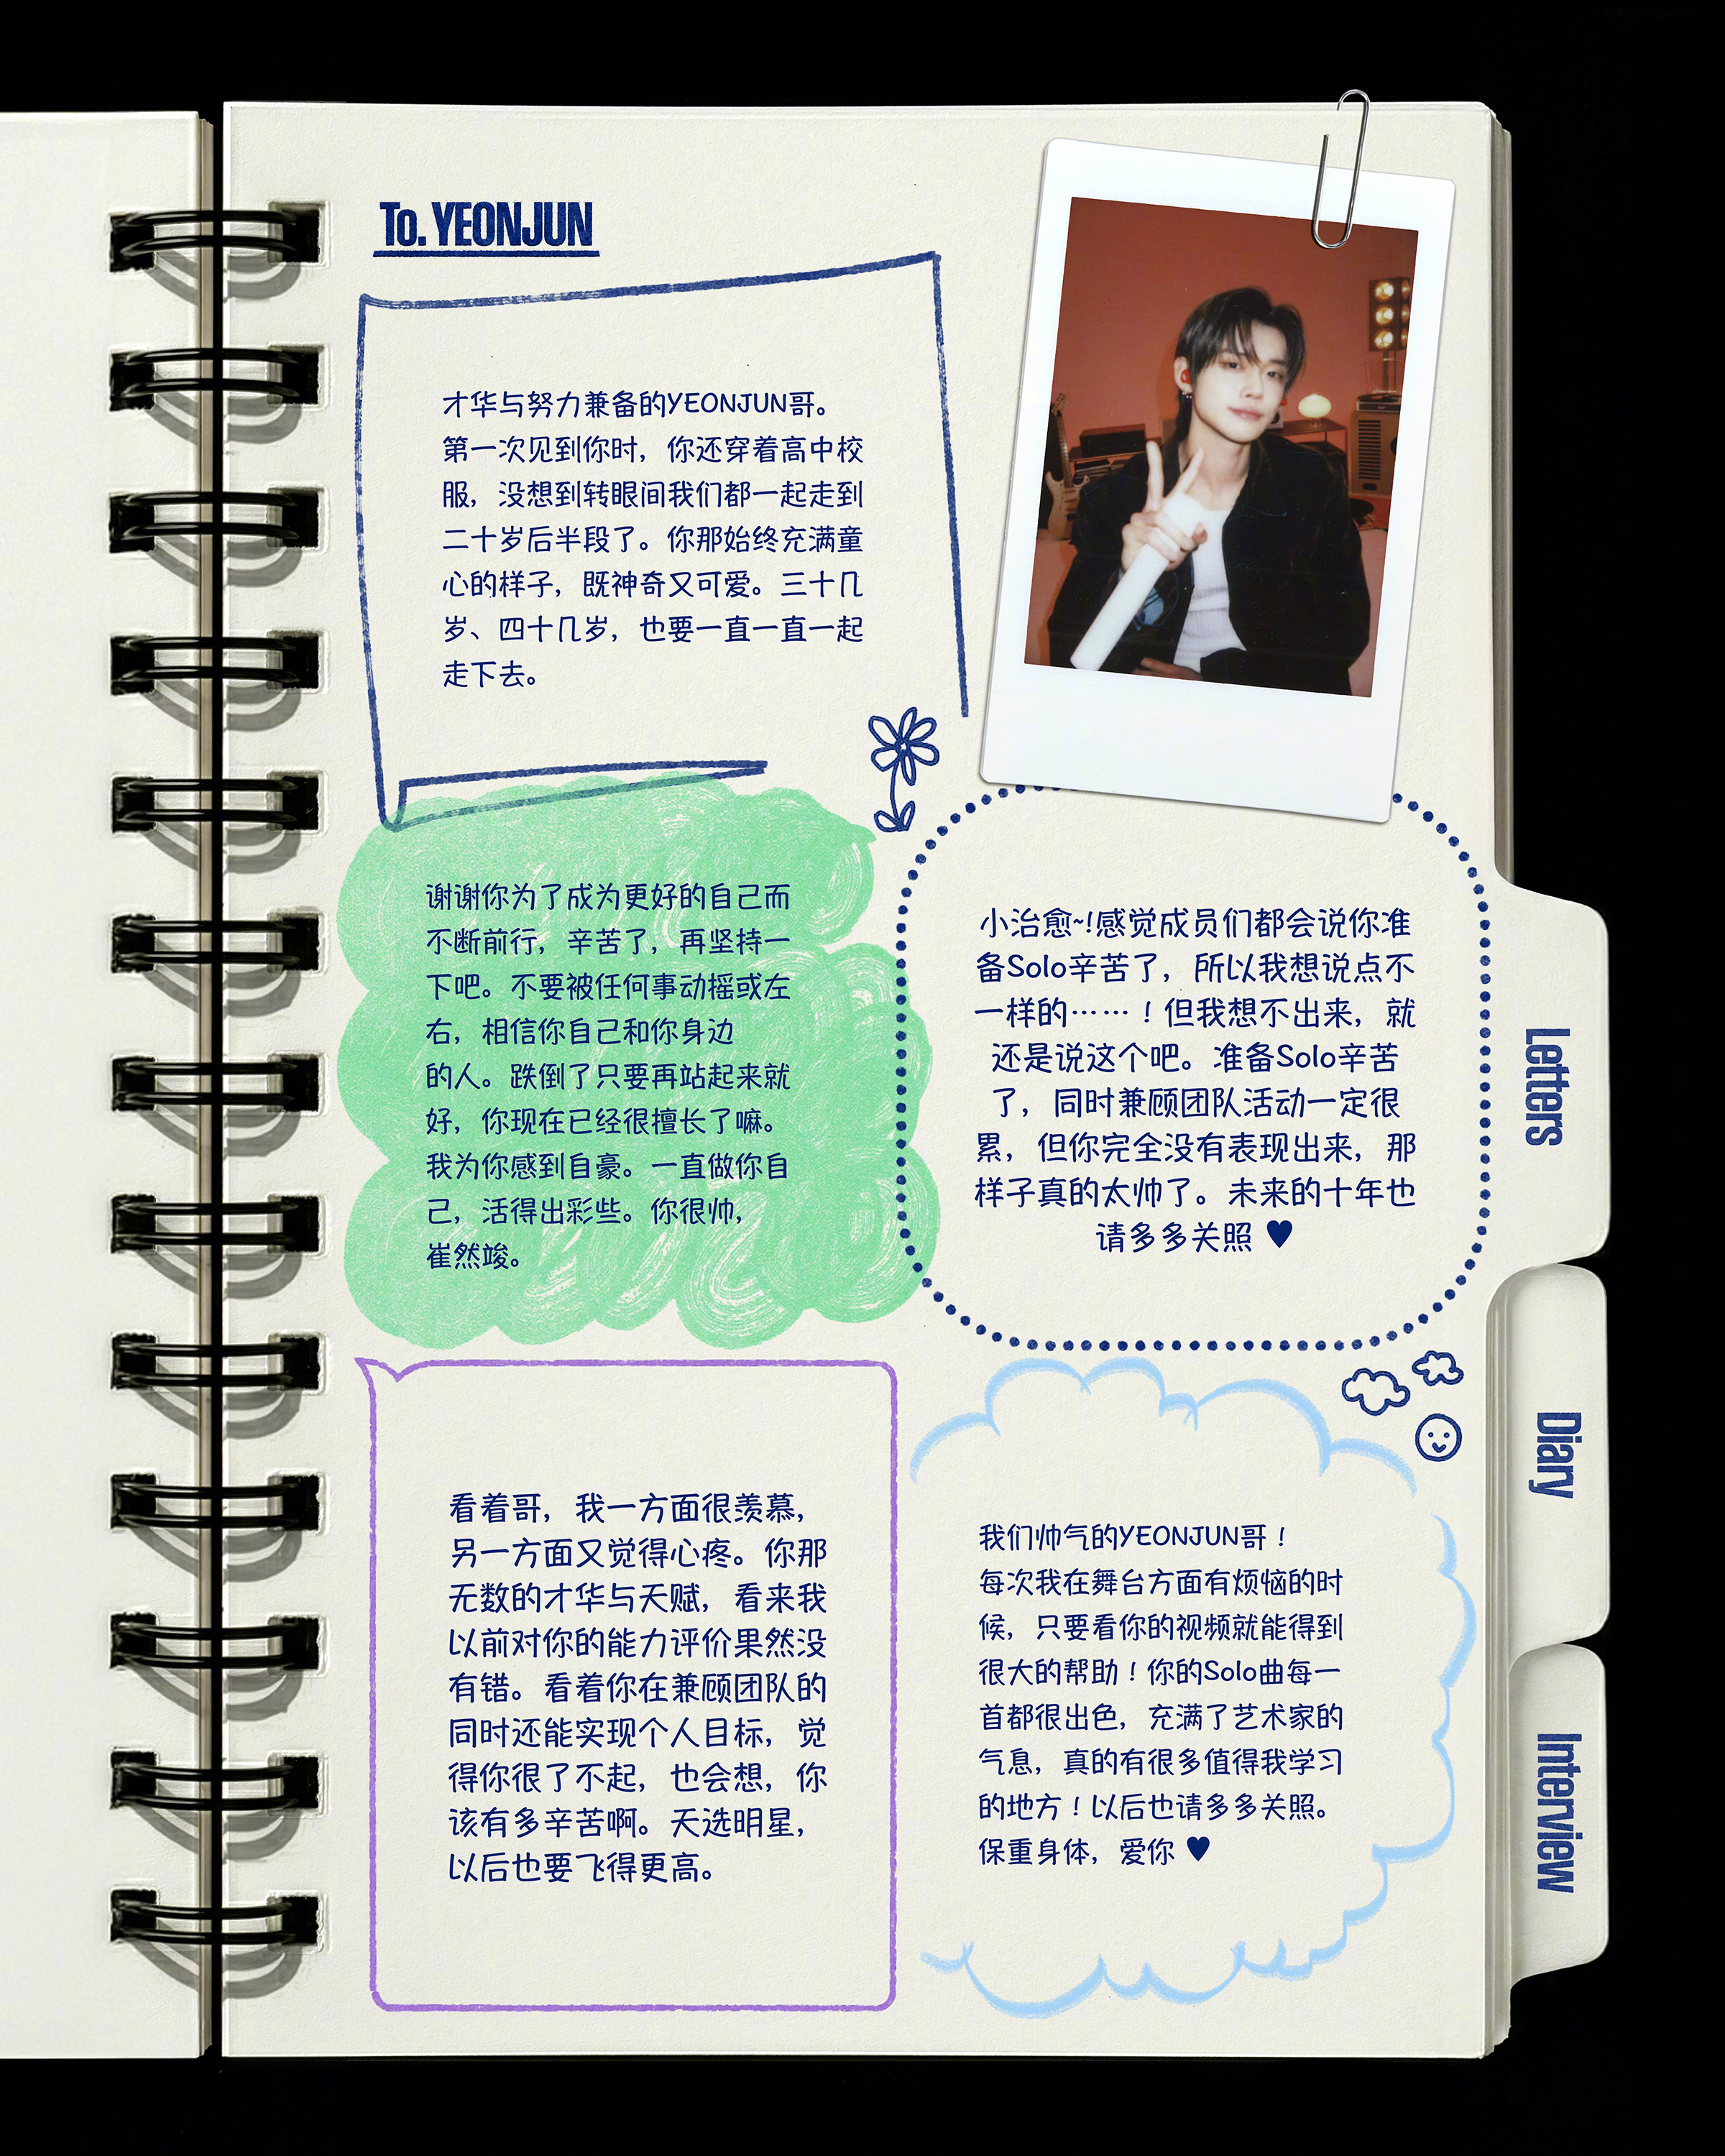 To. YEONJUN
才华与努力兼备的YEONJUN哥。
第一次见到你时，你还穿着高中校
服，没想到转眼间我们都一起走到
二十岁后半段了。你那始终充满童
心的样子，既神奇又可爱。三十几
岁、四十几岁，也要一直一直一起
走下去。
谢谢你为了成为更好的自己而
不断前行，辛苦了，再坚持一
下吧。不要被任何事动摇或左
右，相信你自己和你身边
的人。跌倒了只要再站起来就
好，你现在已经很擅长了嘛。
我为你感到自豪。一直做你自
己，活得出彩些。你很帅，
崔然竣。
小治愈~!感觉成员们都会说你准
备Solo辛苦了，所以我想说点不
一样的……！但我想不出来，就
还是说这个吧。准备Solo辛苦
了，同时兼顾团队活动一定很
累，但你完全没有表现出来，那
样子真的太帅了。未来的十年也
请多多关照 ♥
看着哥，我一方面很羡慕，
另一方面又觉得心疼。你那
无数的才华与天赋，看来我
以前对你的能力评价果然没
有错。看着你在兼顾团队的
同时还能实现个人目标，觉
得你很了不起，也会想，你
该有多辛苦啊。天选明星，
以后也要飞得更高。
我们帅气的YEONJUN哥！
每次我在舞台方面有烦恼的时
候，只要看你的视频就能得到
很大的帮助！你的Solo曲每一
首都很出色，充满了艺术家的
气息，真的有很多值得我学习
的地方！以后也请多多关照。
保重身体，爱你 ♥
Letters
Diary
Interview